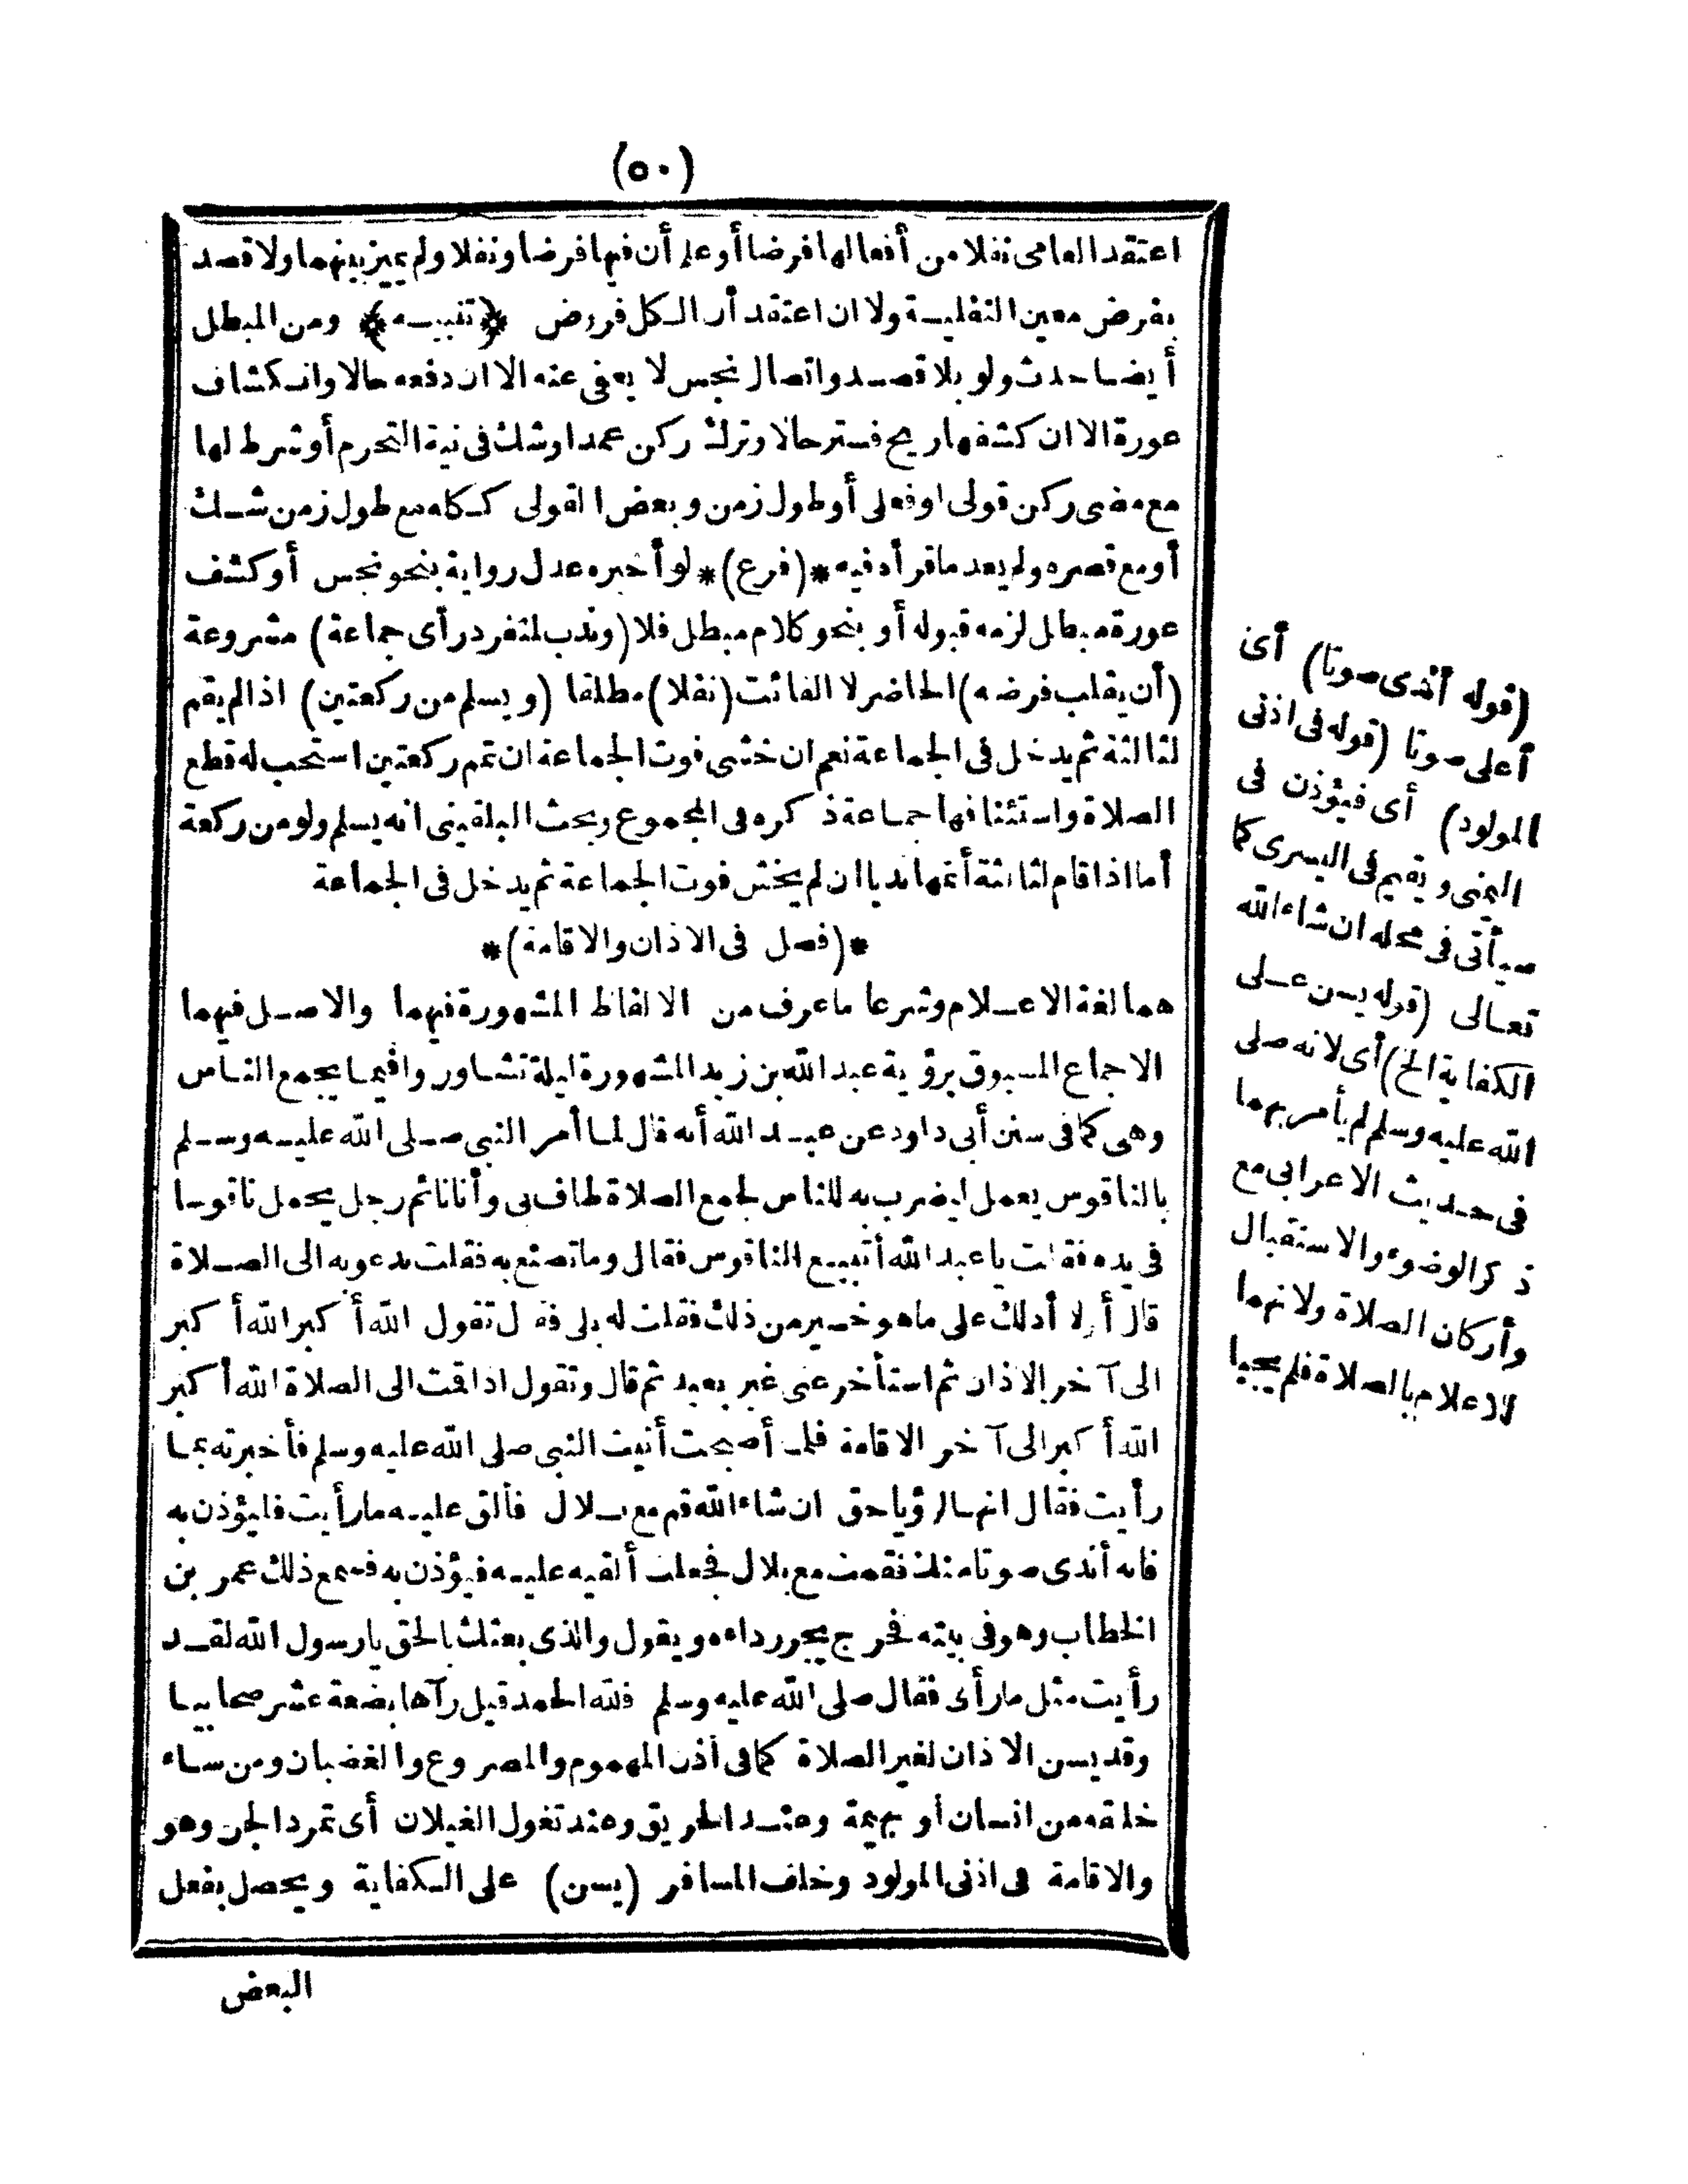 (٥٠)
اعتقد العامى نفلا من أفعالها فرضا أو علم أن فيها فرضا ونفلا ولم يميز بينهما ولا قصد
بفرض معين النفلية ولا ان اعتقد أن الكل فروض ﴿تنبيه﴾ ومن المبطل
أيضا حدث ولو بلا قصد واتصال نجس لا يعفى عنه الا ان دفعه حالا وانكشاف
عورة الا ان كشفها ريح فستر حالا وترك ركن عمدا وشك فى نية التحرم أو شرط لها
مع مضى ركن قولى أو فعلى أو طول زمن وبعض القولى ككله مع طول زمن شك
أو مع قصره ولم يعد ما قرأه فيه *(فرع)* لو أخبره عدل رواية بنحو نجس أو كشف
عورة مبطل لزمه قبوله أو بنحو كلام مبطل فلا (وندب لمنفرد رأى جماعة) مشروعة
(أن يقلب فرضه) الحاضر لا الفائت (نفلا) مطلقا (ويسلم من ركعتين) اذا لم يقم
لثالثة ثم يدخل فى الجماعة نعم ان خشى فوت الجماعة ان تمم ركعتين استحب له قطع
الصلاة واستئنافها جماعة ذكره فى المجموع وبحث البلقينى انه يسلم ولو من ركعة
أما اذا قام لثالثة أتمها ندبا ان لم يخش فوت الجماعة ثم يدخل فى الجماعة
*(فصل فى الاذان والاقامة)*
هما لغة الاعلام وشرعا ما عرف من الالفاظ المشهورة فيهما والاصل فيهما
الاجماع المسبوق برؤية عبد الله بن زيد المشهورة ليلة تشاوروا فيما يجمع الناس
وهى كما فى سنن أبى داود عن عبد الله أنه قال لما أمر النبى صلى الله عليه وسلم
بالناقوس يعمل ليضرب به للناس لجمع الصلاة طاف بى وأنا نائم رجل يحمل ناقوسا
فى يده فقلت يا عبد الله أتبيع الناقوس فقال وما تصنع به فقلت ندعو به الى الصلاة
قال أولا أدلك على ما هو خير من ذلك فقلت له بلى فقال تقول الله أكبر الله أكبر
الى آخر الاذان ثم استأخر عنى غير بعيد ثم قال وتقول اذا قمت الى الصلاة الله أكبر
الله أكبر الى آخر الاقامة فلما أصبحت أتيت النبى صلى الله عليه وسلم فأخبرته بما
رأيت فقال انها لرؤيا حق ان شاء الله قم مع بلال فألق عليه ما رأيت فليؤذن به
فانه أندى صوتا منك فقمت مع بلال فجعلت ألقيه عليه فيؤذن به فسمع ذلك عمر بن
الخطاب وهو فى بيته فخرج يجر رداءه ويقول والذى بعثك بالحق يا رسول الله لقد
رأيت مثل ما رأى فقال صلى الله عليه وسلم فلله الحمد قيل رآها بضعة عشر صحابيا
وقد يسن الاذان لغير الصلاة كما فى أذن المهموم والمصروع والغضبان ومن ساء
خلقه من انسان أو بهيمة وعند الحريق وعند تغول الغيلان أى تمرد الجن وهو
والاقامة فى اذنى المولود وخلف المسافر (يسن) على الكفاية ويحصل بفعل
البعض
(قوله أندى صوتا) أى
أعلى صوتا (قوله فى اذنى
المولود) أى فيؤذن فى
اليمنى ويقيم فى اليسرى كما
سيأتى فى محله ان شاء الله
تعالى (قوله يسن على
الكفاية الخ) أى لانه صلى
الله عليه وسلم لم يأمر بهما
فى حديث الاعرابى مع
ذكر الوضوء والاستقبال
وأركان الصلاة ولانهما
للاعلام بالصلاة فلم يجبا